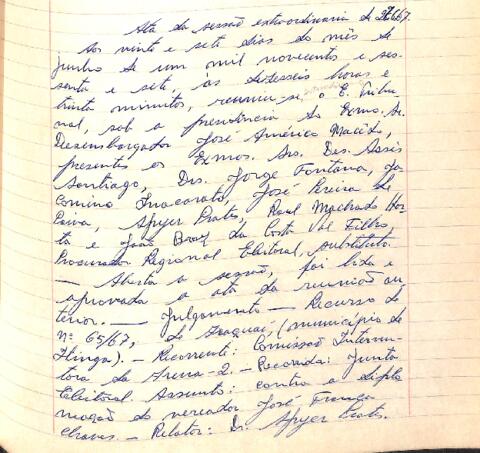 Ata da sessão extraordinaria de 27.6.67.
Aos vinte e sete dias do mês de
junho de um mil novecentos e ses-
senta e sete, às dezesseis horas e
trinta minutos, reuniu-se, o E. Tribu-
nal, sob a presidência do Exmo. Sr.
Desembargador José Américo Macêdo,
presentes os Exmos. Srs. Des. Assis
Santiago, Drs. Jorge Fontana, Ja-
comino Inacarato, José Pereira de
Paiva, Apyer Prates, Raul Machado Hor-
ta e João Braz da Costa Val Filho,
Procurador Regional Eleitoral, substituto.
— Aberta a sessão, foi lida e
aprovada a ata da reunião an-
terior. — Julgamento — Recurso de
nº 65/67, de Araçuaí, (município de
Itinga). — Recorrente: Comissão Interven-
tora da Arena-2. — Recorrida: Junta
Eleitoral. Assunto: contra a diplo
mação do vereador José França
Chaves — Relator: Dr. Apyer Prates.